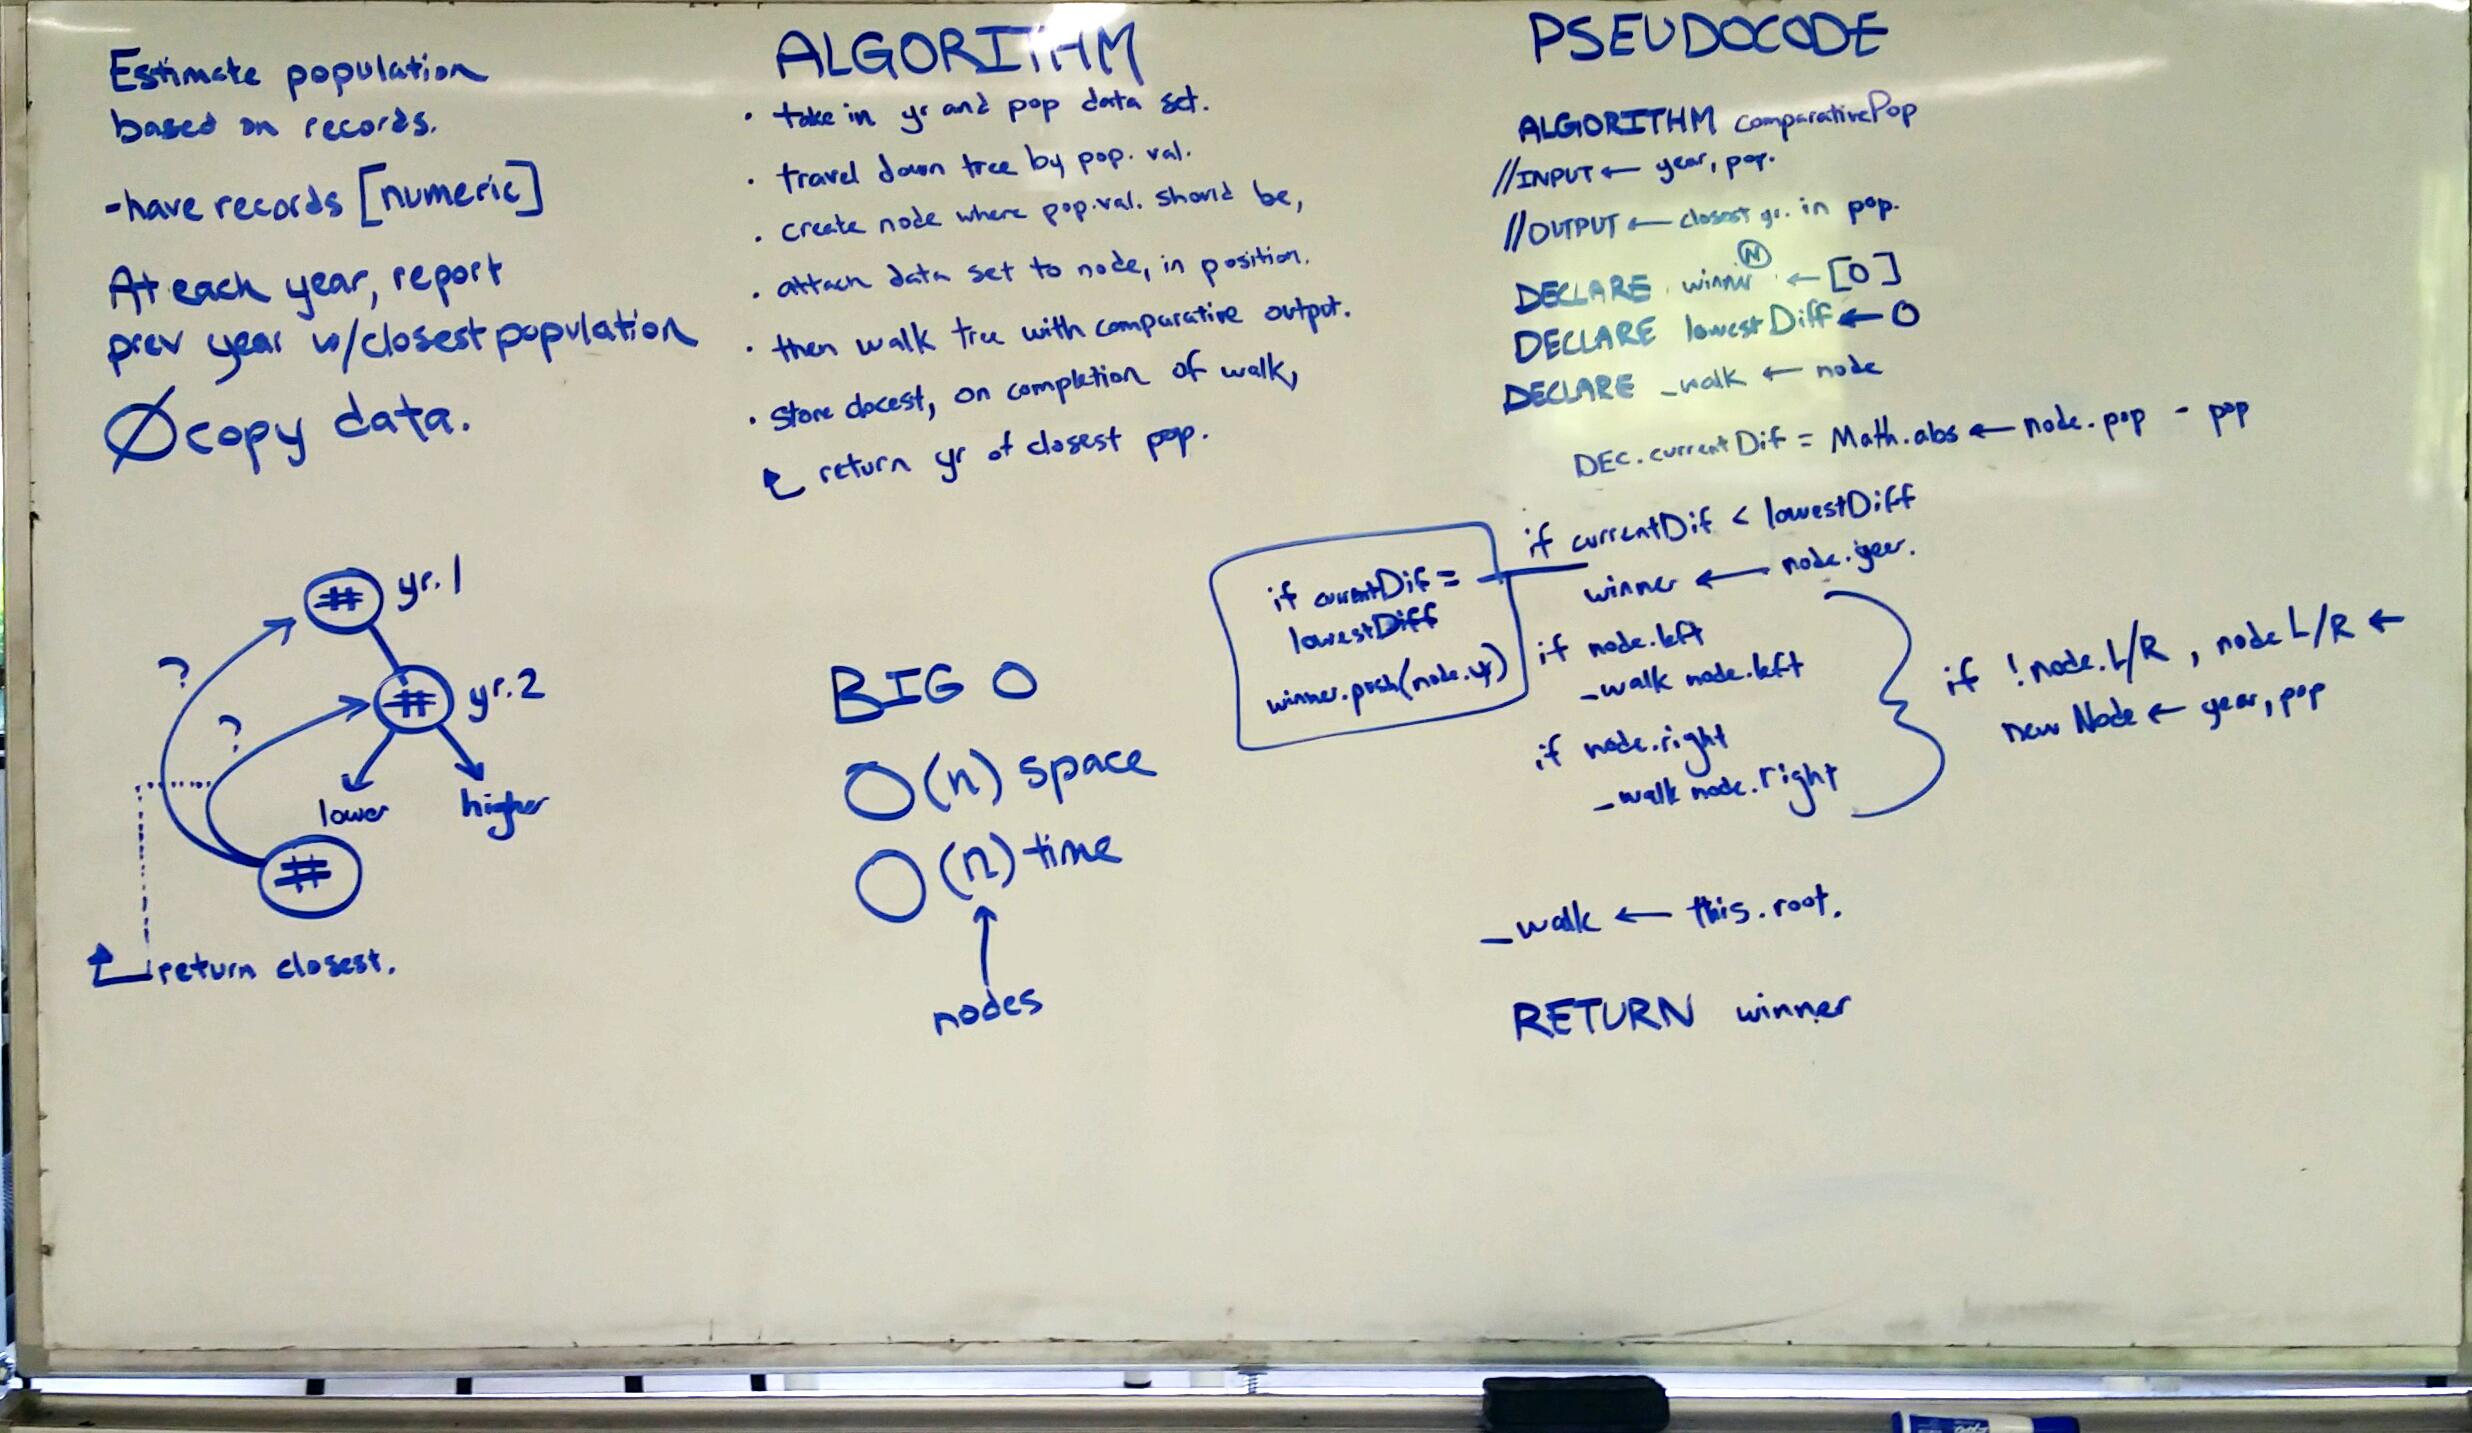 Estimate population
based on records.
-have records [numeric]
At each year, report
prev year w/closest population
Ø copy data.
# yr. 1
?
# yr. 2
?
lower higher
#
return closest.
ALGORITHM
· take in yr and pop data set.
· travel down tree by pop. val.
· create node where pop.val. should be,
· attach data set to node, in position.
· then walk tree with comparative output.
· store closest, on completion of walk,
return yr of closest pop.
BIG O
O(n) space
O(n) time
nodes
PSEUDOCODE
ALGORITHM comparativePop
//INPUT ← year, pop.
//OUTPUT ← closest yr. in pop.
N
DECLARE winner ← [0]
DECLARE lowestDiff ← 0
DECLARE _walk ← node
DEC. currentDif = Math.abs ← node.pop - pop
if currentDif < lowestDiff
winner ← node.year.
if currentDif =
lowestDiff
winner.push(node.yr)
if node.left
_walk node.left
if node.right
_walk node.right
if !node.L/R, node L/R ←
new Node ← year, pop
_walk ← this.root.
RETURN winner